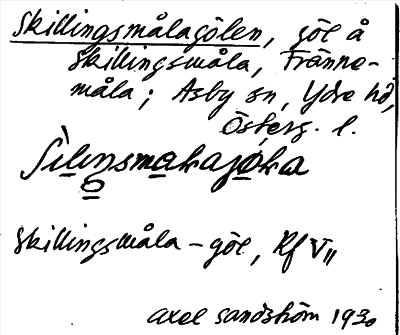 Skillingsmålagölen, göl å
Skillingsmåla, Fränne-
måla; Asby sn, Ydre hd,
Österg. l.
Skillingsmåla - göl, Rf V,,
Axel Sandström 1930